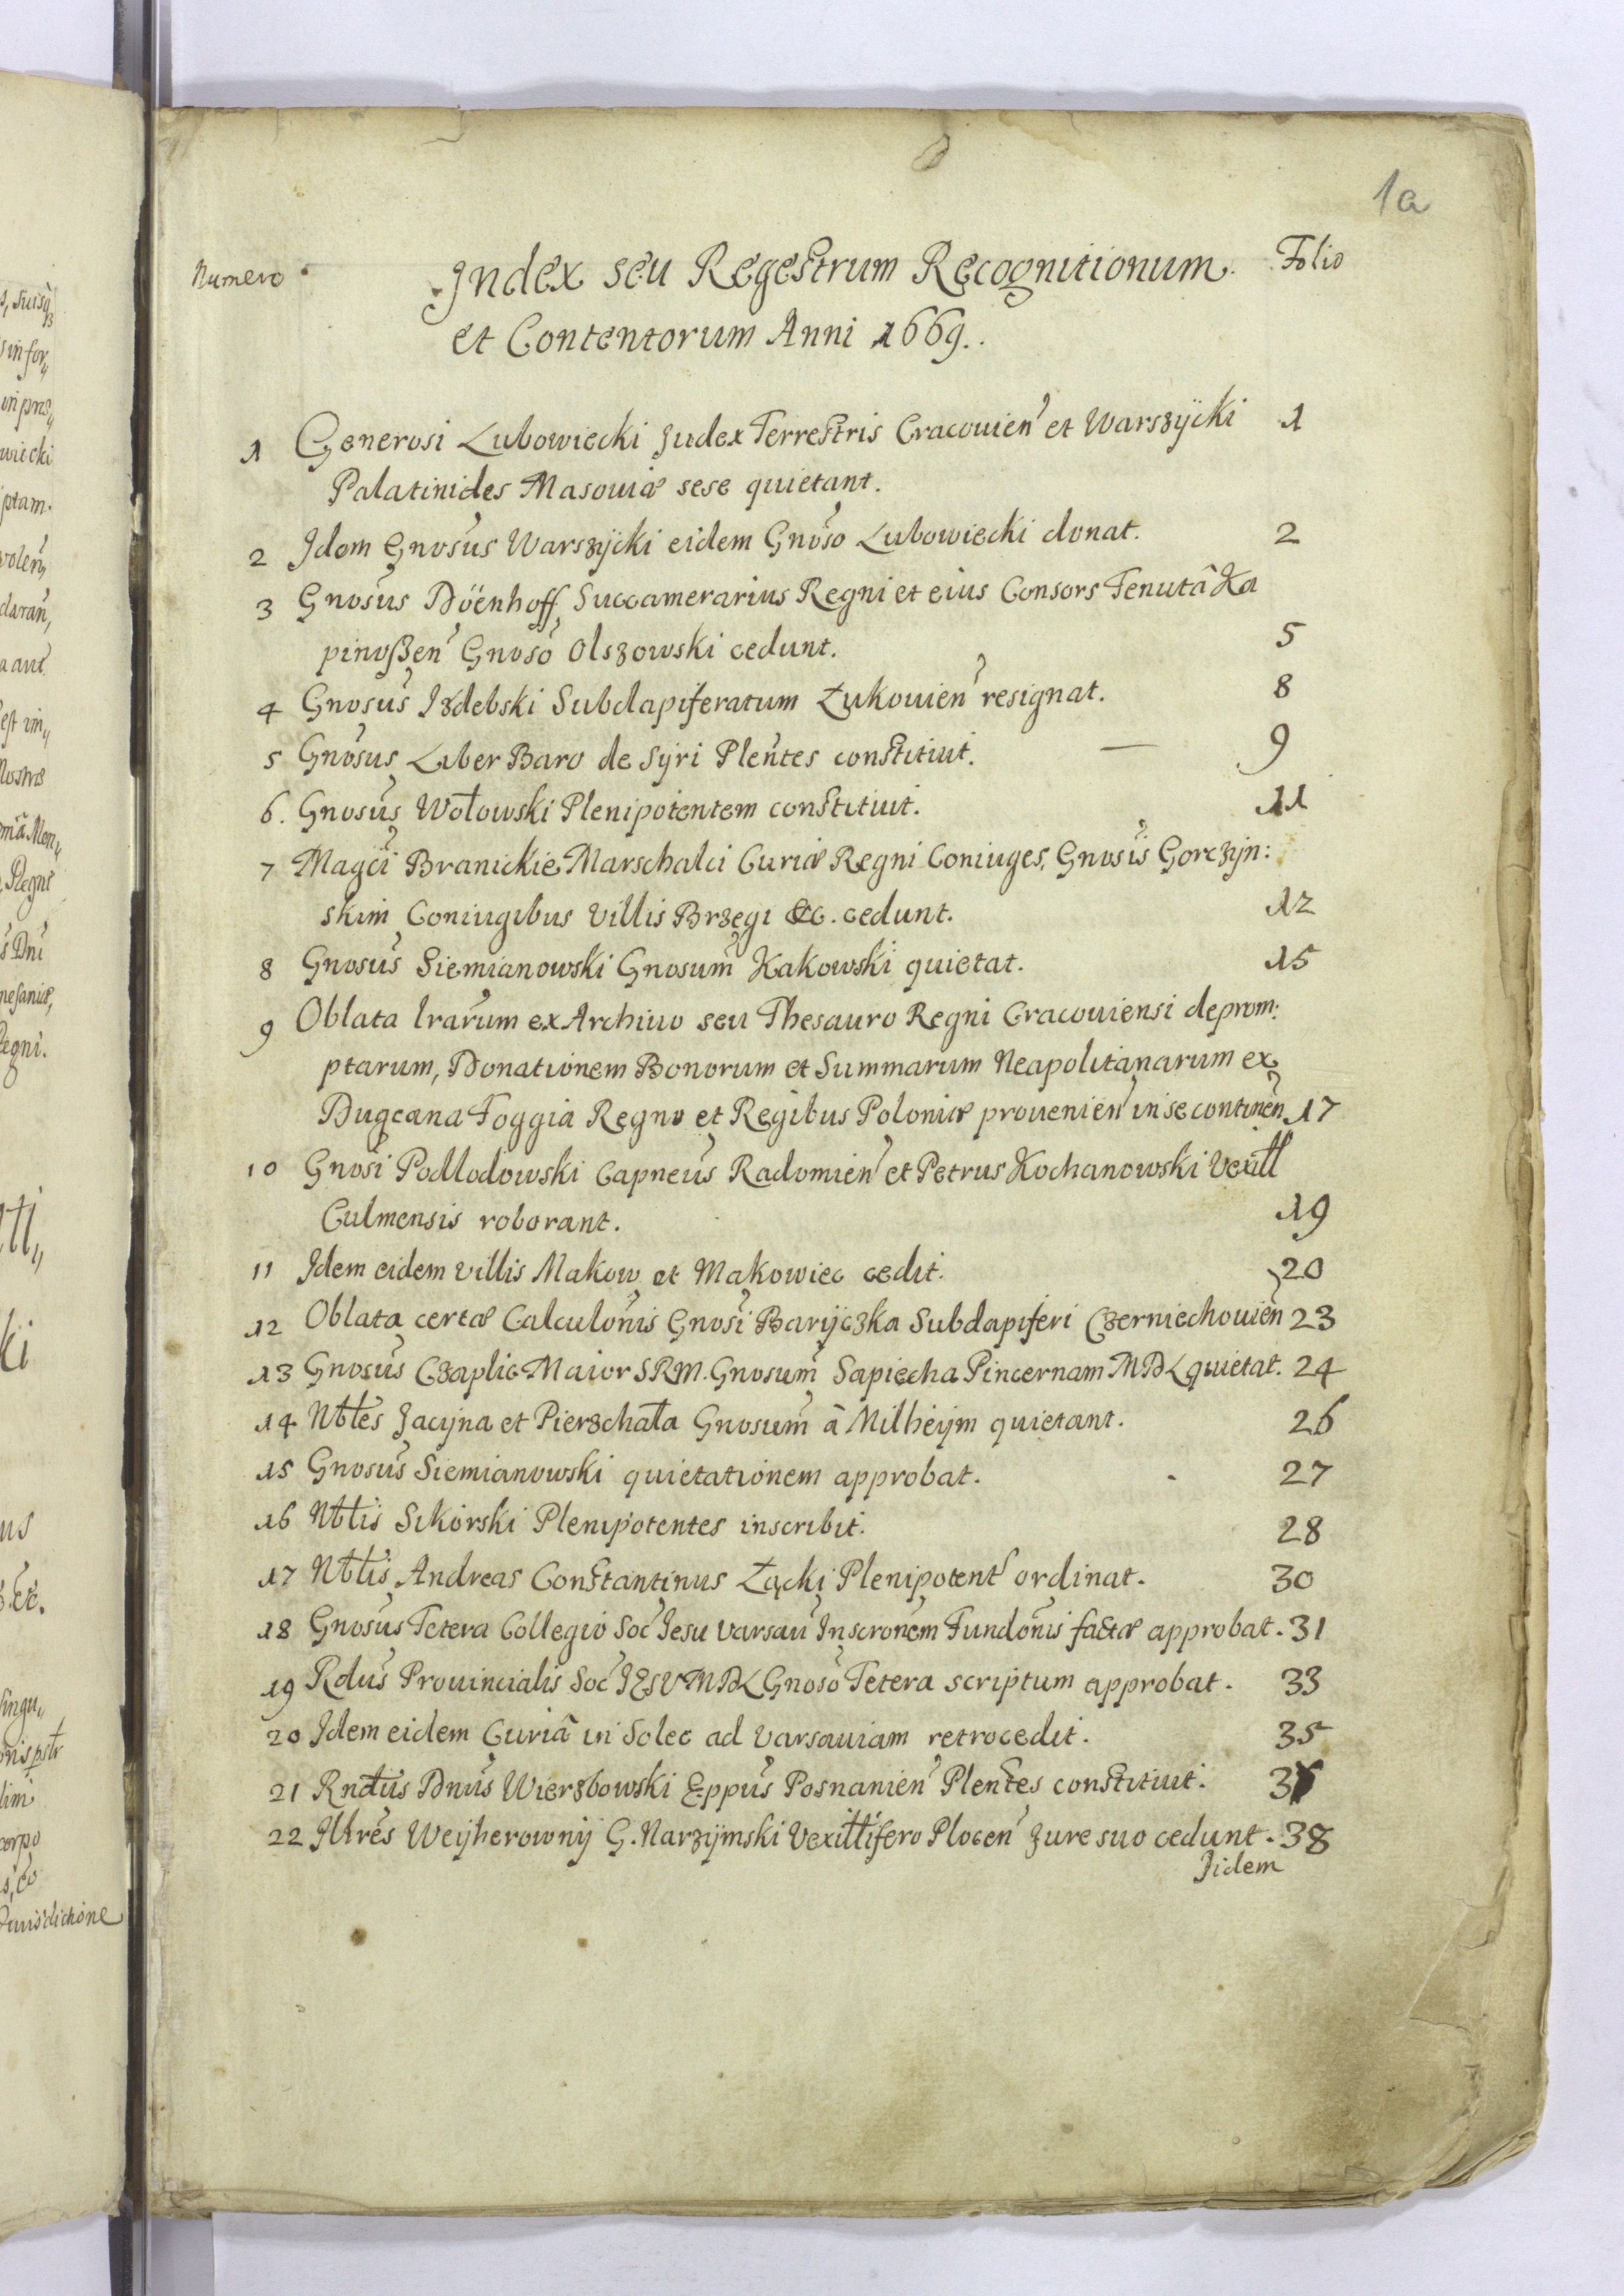 1a
Numero Index seu Regestrum Recognitionum Folio
et Contentorum Anni 1669.
1 Generosi Lubowiecki Judex Terrestris Cracouien et Warszÿcki 1
Palatinides Masouiæ sese quietant.
2 Idem Gnosus Warszÿcki eidem Gnoso Lubowiecki donat. 2
3 Gnosus Döenhoff Succamerarius Regni et eius Consors Tenutâ Ka
pinoßen Gnoso Olszowski cedunt. 5
4 Gnosus Izdebski Subdapiferatum Łukouien resignat. 8
5 Gnosus Liber Baro de Sÿri Plentes constituit. 9
6. Gnosus Wołowski Plenipotentem constituit. 11
7 Magci Branickie Marschalci Curiæ Regni Coniuges, Gnosis Gorczÿn:
skim Coniugibus Villis Brzegi &c. cedunt. 12
8 Gnosus Siemianowski Gnosum Kakowski quietat. 15
9 Oblata lrarum ex Archiuo seu Thesauro Regni Cracouiensi deprom:
ptarum, Donationem Bonorum et Summarum Neapolitanarum ex
Dugeana Foggia Regno et Regibus Poloniæ prouenien in se continen 17
10 Gnosi Podlodowski Capneus Radomien et Petrus Kochanowski Vexill
Culmensis roborant. 19
11 Idem eidem villis Makow et Makowiec cedit. 20
12 Oblata certæ Calculonis Gnosi Barÿczka Subdapiferi Czerniechouien 23
13 Gnosus Czaplic Maior SRM. Gnosum Sapiecha Pincernam MDL quietat. 24
14 Nbles Jacÿna et Pierzchała Gnosum â Milheÿm quietant. 26
15 Gnosus Siemianowski quietationem approbat. 27
16 Nblis Sikorski Plenipotentes inscribit. 28
17 Nblis Andreas Constantinus Łącki Plenipotent ordinat. 30
18 Gnosus Tetera Collegio Soc Iesu Varsau Inscronem Fundonis factæ approbat. 31
19 Rdus Prouincialis Soc IESV MDL Gnoso Tetera scriptum approbat. 33
20 Idem eidem Curiâ in Solec ad Varsauiam retrocedit. 35
21 Rndus Dnus Wierzbowski Eppus Posnanien Plentes constituit.
22 Illres Weÿherownÿ G. Narzÿmski Vexillifero Plocen Jure suo cedunt. 38
Iidem